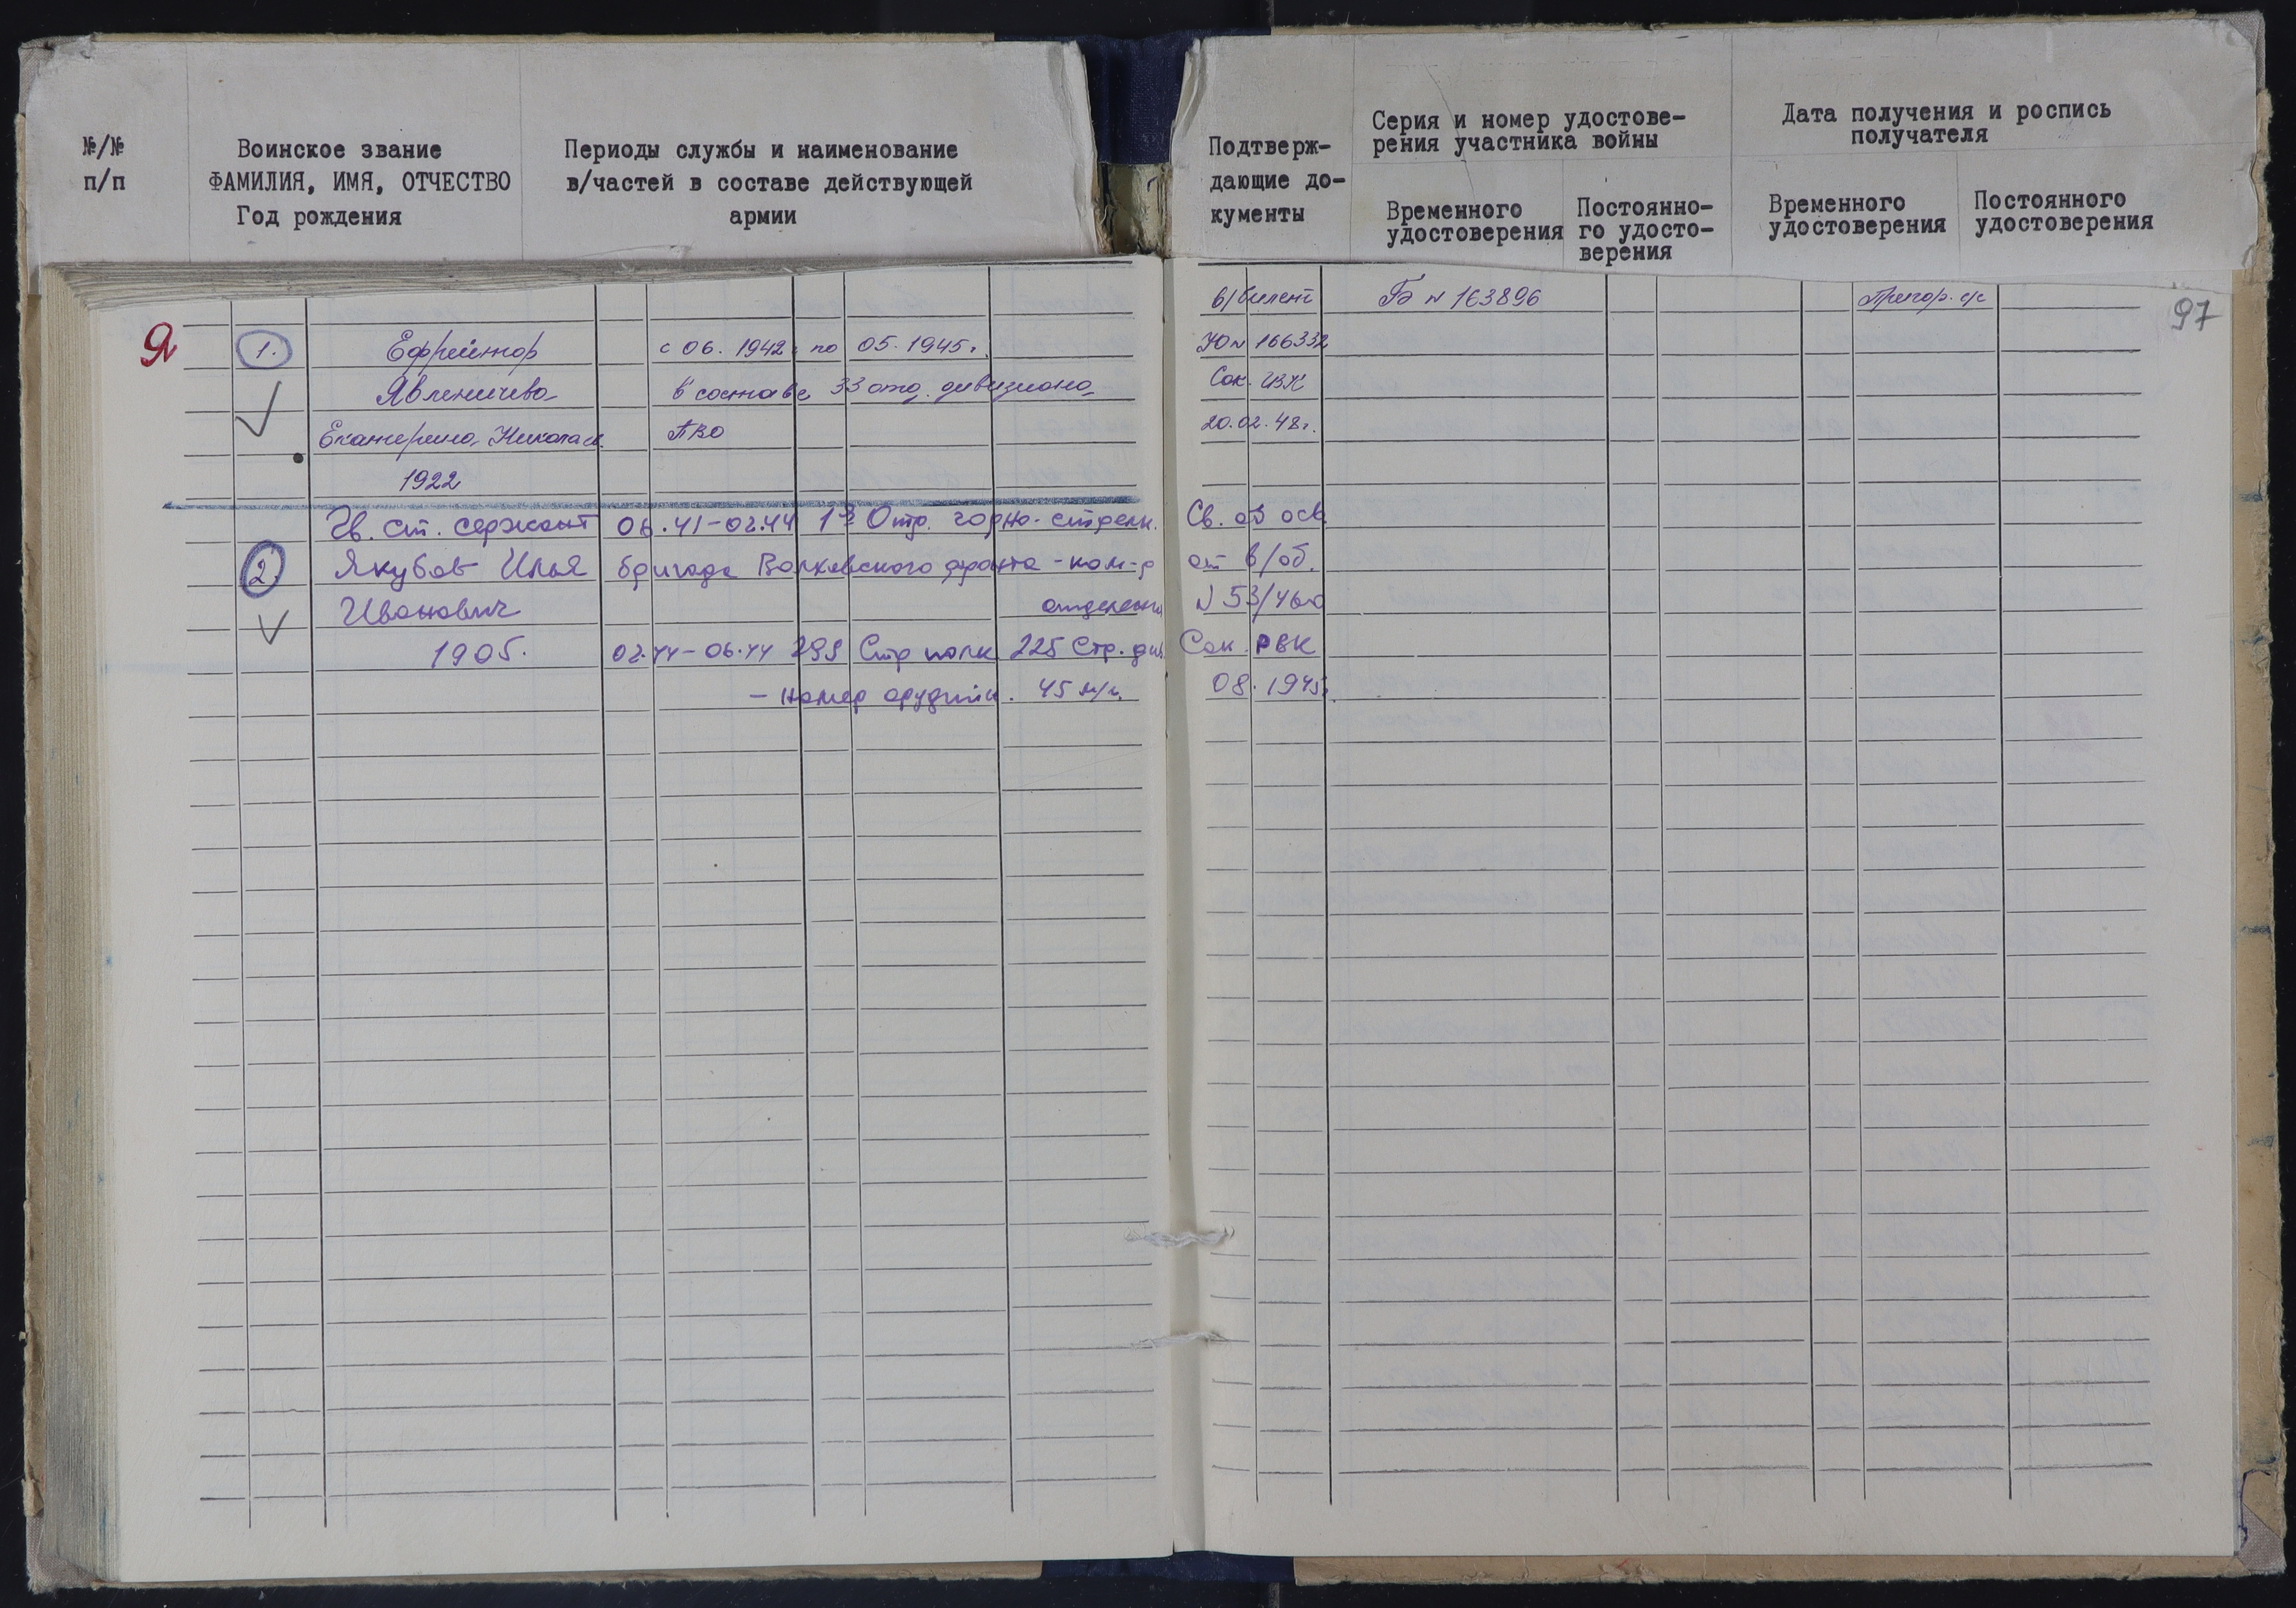 №/№
п/п
Воинское звание
ФАМИЛИЯ, ИМЯ, ОТЧЕСТВО
Год рождения
Периоды службы и наименование
в/частей в составе действующей
армии
Подтверж-
дающие до-
кументы
Серия и номер удостове-
рения участника войны
Временного
удостоверения
Постоянно-
го удосто-
верения
Дата получения и роспись
получателя
Временного
удостоверения
Постоянного
удостоверения
97
Я
в/билет Гэ № 163896 Пригор. с/с
1. Ефрейтор с 06. 1942 г по 05. 1945г. Ю № 166332
Явленичева в составе 33 отд. дивизиона Сок.
Екатерина Николаев. ПВО 20.02.48г.
1922
Гв. ст. сержант 06.41-02.44 Отд. горно-стрелк. Св. об осв.
2. Якубов Илья бригада Волховского фронта - ком-р от в/об.
Иванович отделения № 53/460
1905. 02.44-06.44 299 Стр полк 225 Стр. див. Сок. РВК
- номер орудия. 45 м/м. 08. 1945г.